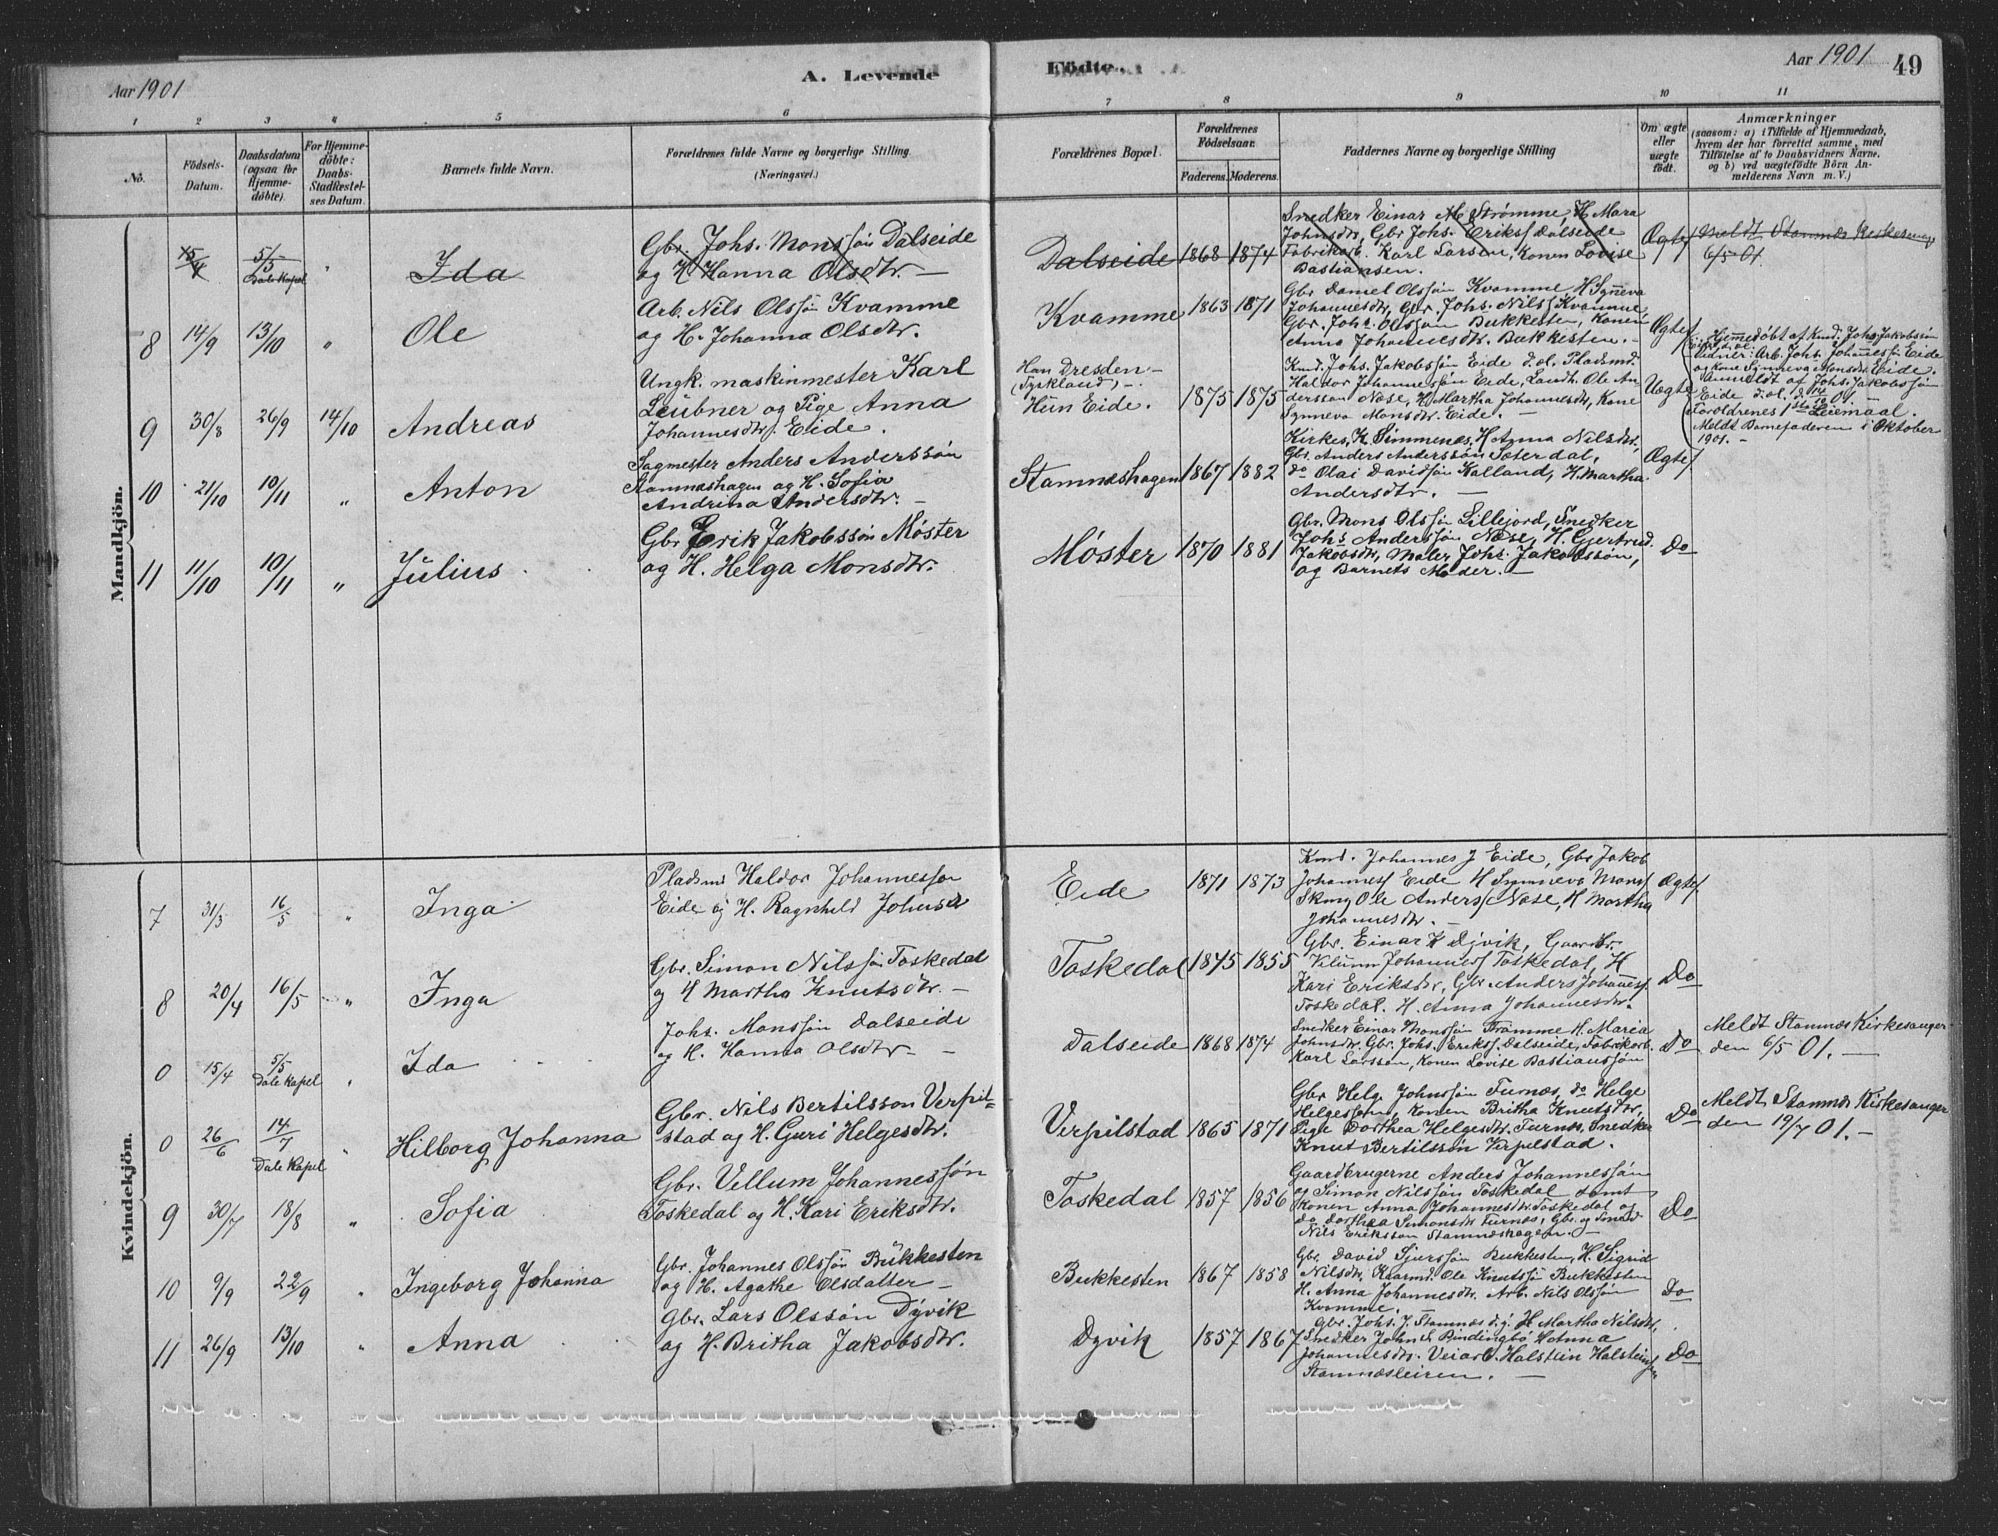 Aar 1901
A. Levende
Födte.
Aar 1901
49
1 2 3 4 5 6 7 8 9 10 11
No.
Födsels-Datum.
Daabsdatum (ogsaa for Hjemmedøbte).
For Hjemmedøbte: Daabs-Stadfæstelses Datum.
Barnets fulde Navn.
Forældrenes fulde Navne og borgerlige Stilling (Næringsvei.)
Forældrenes Bopæl.
Forældrenes Födselsaar.
Faderens. Moderens.
Faddernes Navne og borgerlige Stilling
Om ægte eller uægte födt.
Anmærkninger
(saasom: a) i Tilfælde af Hjemmedaab, hvem der har forrettet samme, med Tilföielse af to Daabsvidners Navne, og b) ved uægtefödte Börn Anmelderens Navn m. V.)
Mandkjön.
15/4 5/5 Dale Kapel " Ida
Gbr. Johs. Monssøn Dalseide
og H Hanna Olsdtr. —
Dalseide 1868 1874
Snedker Einar M Strømme, H Mara
Johnsdtr, Gbr Johs. Eriks/ Dalseide
Fabrikarb. Karl Larsen, Konen Lovise
Bastiansen.
Ægte/
Meldt Stamnæs Kirkesanger
6/5 01.
8 14/9 13/10 " Ole
Arb. Nils Olssøn Kvamme
og H. Johanna Olsdtr.
Kvamme 1863 1871
Gbr Daniel Olssøn Kvamme H Synneva
Johannesdtr, Gbr. Johs. Nilss/ Kvamme,
Gbr. Johs. Olssøn Bukkesten, Konen
Anna Johannesdtr. Bukkesten. —
Ægte/
9 30/8 26/9 14/10 Andreas
Ungk. maskinmester Karl
Leübner og Pige Anna
Johannesdtr. Eide.
Han Dresden —
(Tyskland), —
Hun Eide.
1875 1875
Knd. Johs. Jakobssøn Eide d.æl. Pladsmd
Haldor Johannessøn Eide, Landh. Ole An
derssøn Næse, H. Martha Johannesdtr, Kone
Synneva Monsdtr. Eide. —
Uægte
Hjemmedøbt af Knd. Johs. Jakobssøn
Eide d.æl.
Vidner: Arb. Johs. Johannessøn Eide
og Kone Synneva Monsdtr. Eide.
Anmeldt af Johs. Jakobssøn
Eide d.æl. d. 14/10 01. —
Foroldrenes 1ste Leiemaal.
Meldt Barnefaderen i Oktober
1901. —
10 21/10 10/11 " Anton
Sagmester Anders Anderssøn
Stamnæshagen og H. Sofia
Andrina Andersdtr. —
Stamnæshagen 1867 1882
Kirkes. K. Simmenæs, H Anna Nilsdtr,
Gbr. Anders Anderssøn Sæterdal,
do Olai Davidssøn Kalland, H. Martha
Andersdtr. —
Ægte/
11 11/10 10/11 " Julius
Gbr Erik Jakobssøn Møster
og H. Helga Monsdtr.
Møster 1870 1881
Gbr. Mons Olssøn Lillejord, Snedker
Johs Anderssøn Næse, H. Gjertrud
Jakobsdtr, Maler Johs. Jakobssøn,
og Barnets Moder. —
Do
Kvindekjön.
7 31/3 16/5 " Inga
Pladsmd Haldor Johannessøn
Eide og H. Ragnhild Johnsdtr
Eide 1871 1873
Knd. Johannes J Eide, Gbr Jakob
Johannes/ Eide H Synneva Mons/
Ole Anders/ Næse, H Martha
Johannesdtr. —
Ægte/
8 20/4 16/5 " Inga
Gbr. Simon Nilssøn Toskedal
og H Martha Knutsdtr. —
Toskedal 1845 1855
Gbr. Einar K Dyvik, Gaardbr.
Vellum Johannes/ Toskedal, H
Kari Eriksdtr, Gbr. Anders Johannes/
Toskedal. H. Anna Johannesdtr.
Do
0 15/4 5/5 Dale Kapel " Ida
Johs. Monssøn Dalseide
og H. Hanna Olsdtr. —
Dalseide 1868 1874
Snedker Einar Monssøn Strømme H. Maria
Johnsdtr. Gbr. Johs. Eriks/. Dalseide, Fabrikarb.
Karl Larssen, Konen Lovise Bastianssøn
Do
Meldt Stamnæs Kirkesanger
den 6/5 01. —
0 26/6 14/7 Dale Kapel " Hilborg Johanna
Gbr. Nils Bertilsson Verpil=
stad og H. Guri Helgesdtr.
Verpilstad 1865 1871
Gbr Helge Johnssøn Furnæs, do Helge
Helgessøn, Konen Britha Knutsdtr,
Pige Dorthea Helgesdtr. Furnæs, Snedker
Knut Bertilssøn Verpelstad.
Do
Meldt Stamnæs Kirkesanger
den 19/7 01. —
9 30/7 18/8 " Sofia
Gbr. Vellum Johannessøn
Toskedal og H. Kari Eriksdtr.
Toskedal 1857 1856
Gaardbrugerne Anders Johannessøn
og Simon Nilssøn Toskedal samt
Konen Anna Johannesdtr. Toskedal og
do Dorthea Simonsdtr Furnæs, Gbr. og Smed
Nils Erikssøn Stamnæshagen. —
Do
10 9/9 22/9 " Ingeborg Johanna
Gbr. Johannes Olssøn Bükkesten
og H. Agathe Olsdatter —
Bukkesten 1867 1858
Gbr. David Sjurssøn Bukkesten, H. Sigrid
Nilsdtr, Kaarmd. Ole Knutssøn Bukkesten
H. Anna Johannesdtr. Arb. Nils Olssøn
Kvamme.
Do
11 26/9 13/10 " Anna
Gbr. Lars Olssøn Dyvik
og H. Britha Jakobsdtr.
Dyvik 1857 1867
Gbr. Johs. J. Stamnæs d.y. H Martha Nilsdtr,
Snedker John S. Bindingbø H Anna
Johannesdtr. Veiarb. Halstein Halsteins/
Stamnæsleiren. —
Do